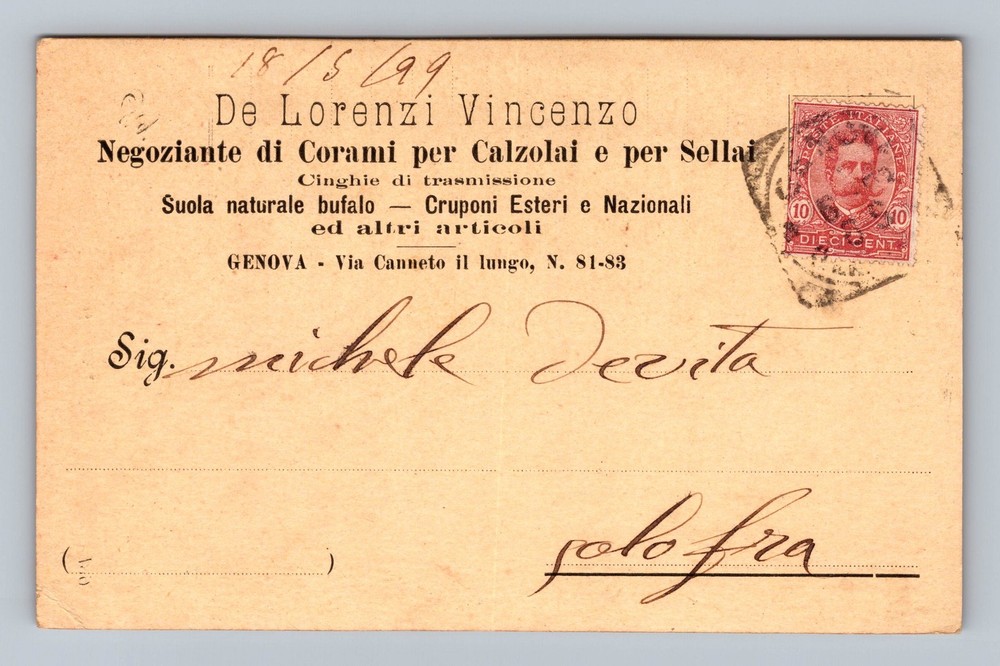 18/5/99
De Lorenzi Vincenzo
Negoziante di Corami per Calzolai e per Sellai
Cinghie di trasmissione
Suola naturale bufalo — Cruponi Esteri e Nazionali
ed altri articoli
GENOVA - Via Canneto il lungo, N. 81-83
POSTE ITALIANE
10 10
DIECI CENT.
Sig. michele Devita
solofra
( )